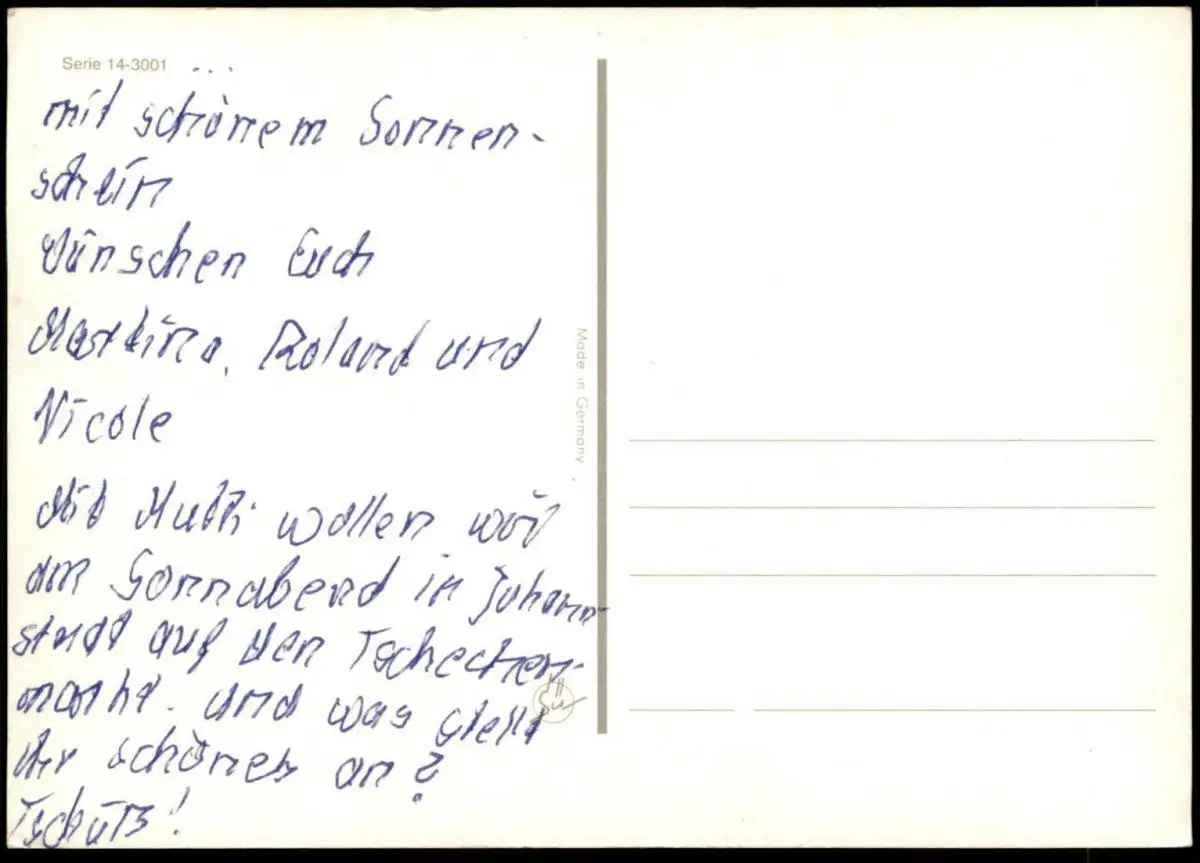 Serie 14-3001
...
mit schönem Sonnen-
schein
Wünschen Euch
Martina, Roland und
Nicole
Mit Mutti wollen wir
am Sonnabend in Johann-
stadt auf den Tschechen-
markt. und was stellt
Ihr schönes an?
Tschüß!
Made in Germany